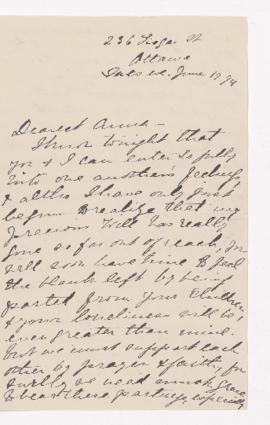 236
Ottawa
June 19/94
Dearest Anna -
I know tonight that
you & I can enter so fully
into one another's feelings,
& altho I have only just
begun to realize that my
precious Will has really
gone so far out of reach, you
will soon have time to feel
the blank left by being
parted from your children
& your loneliness will be
even greater than mine.
but we must support each
other by prayer & faith, for
surely we need much grace
to bear these partings, especially